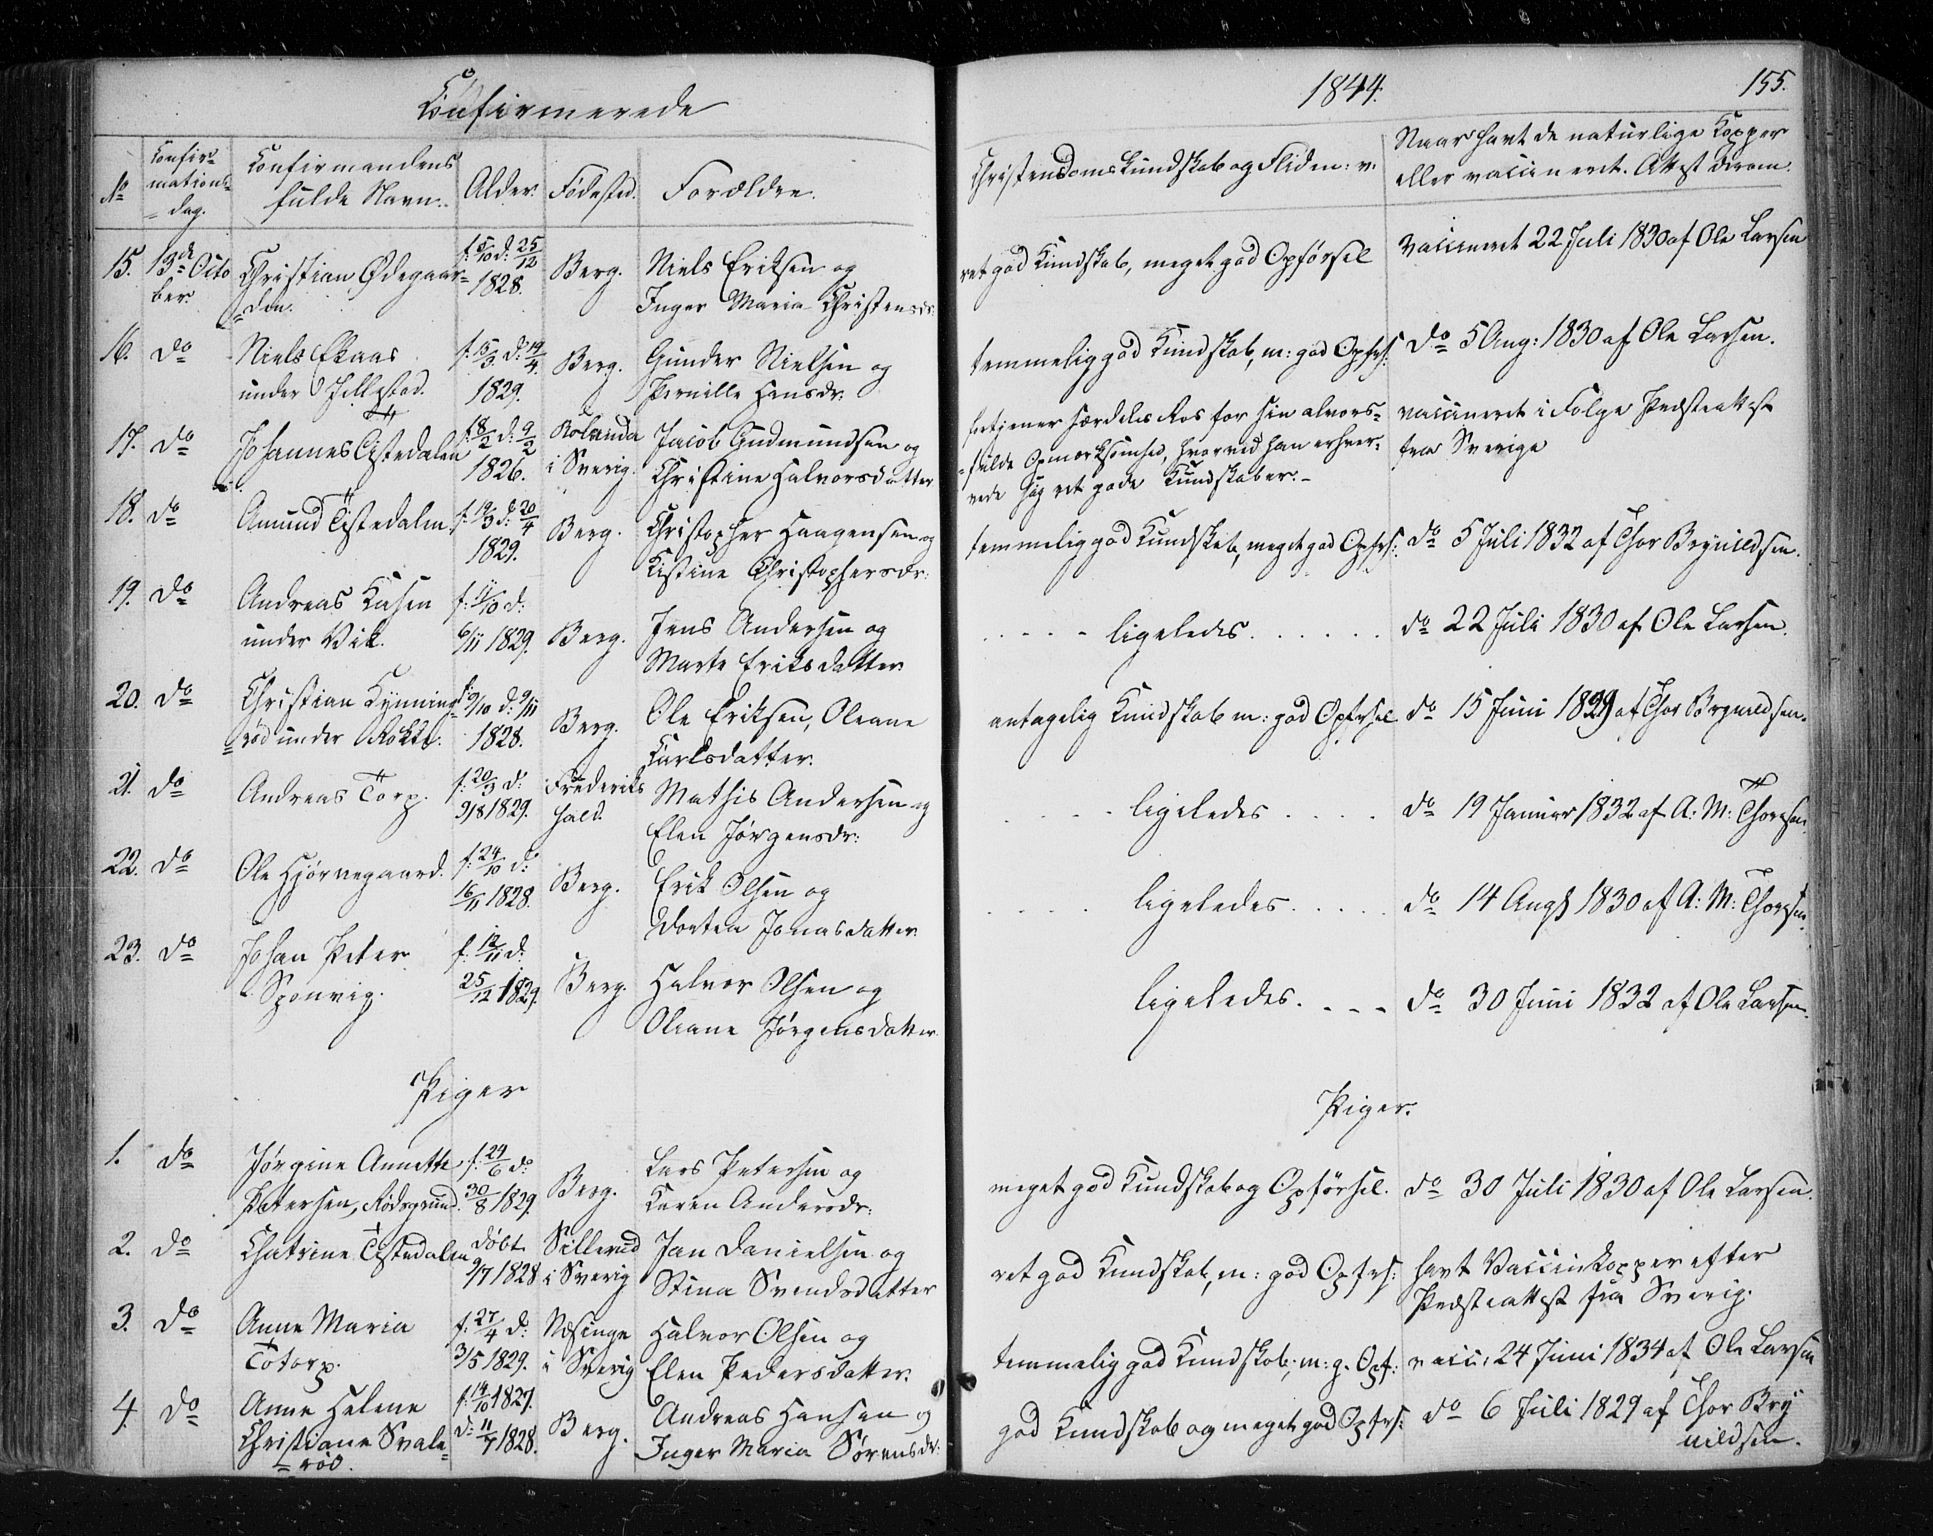 Confirmerede
No
Confir=
mations=
dag.
Confirmandens
fulde Navn.
Alder.
Fødested.
Forældre.
15. 13de Octo
ber.
Christian Ødegaar=
=den.
f. 5/10 d: 25/12
1828.
Berg.
Niels Eriksen og
Inger Maria Christensdr.
16. do
Niels Ekaas
under Jellestad.
f. 15/3. d: 19/4.
1829.
Berg.
Gunder Nielsen og
Pernille Hansdr.
17. do
Johannes Tistedalen
f. 8/2 d: 9/2
1826.
Bolanda
i Sverig.
Jacob Gudmundsen og
Christine Halvorsdatter
18. do
Amund Tistedalen
f. 19/3 d: 20/4
1829.
Berg.
Christopher Haagensen og
Kistine Christophersdr:
19. do
Andreas Kasen
under Vik.
f: 11/10 d:
6/11 1829.
Berg.
Jens Andersen og
Marte Eriksdatter
20. do
Christian Kynning=
=rød under Rokke.
f: 9/10 d: 9/11
1828.
Berg.
Ole Eriksen, Oleane
Carlsdatter.
21. do
Andreas Torp.
f. 20/3 d:
9/8 1829.
Frederiks
hald.
Mathis Andersen og
Elen Jørgensdr:
22. do
Ole Hjørnegaard.
f: 24/10 d:
16/11 1828.
Berg.
Erik Olsen og
Dortea Jonasdatter
23. do
Johan Peter
Sponvig.
f. 12/11 d:
25/12 1829.
Berg.
Halvor Olsen og
Oleane Jørgensdatter.
Piger
1. do
Jørgine Annette
Petersen, Rødsgrund.
f. 24/6 d:
30/8 1829.
Berg.
Lars Petersen og
Karen Andersdr:
2. do
Chatrine Tistedalen
døbt
9/7 1828
Sillerud
i Sverig
Jan Danielsen og
Stina Svendsdatter
3. do
Anne Maria
Totorp.
f. 27/4 d:
3/5 1829.
Næsinge
i Sverig
Halvor Olsen og
Elen Pedersdatter.
4. do
Anne Helene
Christiane Svale=
=rød.
f. 14/10 1827.
d: 11/7 1828.
Berg.
Andreas Hansen og
Inger Maria Sørensdr:
1844.
155.
Christendomskundskab og Fliden: v.
Naar havt de naturlige Kopper
eller vaccineret. Attest derom.
ret god Kundskab, meget god Opførsel
vaccineret 22 Juli 1830 af Ole Larsen
temmelig god Kundskab, m: god Opfrs:
do 5 Aug: 1830 af Ole Larsen.
fortjener særdeles Ros for sin alvors=
=fulde Opmærksomhed, hvorved han erhver=
vede sig ret gode Kundskaber.
vaccineret i Følge Præsteattest
fra Sverige
temmelig god Kundskab, meget god Opfrs:
do 5 Juli 1832 af Thor Brynildsen.
- - - - ligeledes. . . . . .
do 22 Juli 1830 af Ole Larsen.
antagelig Kundskab m: god Opfrsel
do 15 Juni 1829 af Thor Brynildsen.
. . . ligeledes . . . .
do 19 Januar 1832 af A: M: Thoresen.
. . . . ligeledes . . . . .
do 14 Augs 1830 af A: M: Thoresen.
ligeledes. - - -
do 30 Juni 1832 af Ole Larsen.
Piger.
meget god Kundskab og Opførsel.
do 30 Juli 1830 af Ole Larsen.
ret god Kundskab, m: god Opfrs:
havt Vaccinkopper efter
Præsteattest fra Sverig.
temmelig god Kundskab, m: g. Opf:
vacc: 24 Juni 1834 af Ole Larsen
god Kundskab og meget god Opfrs:
do 6 Juli 1829 af Thor Bry
nildsen.